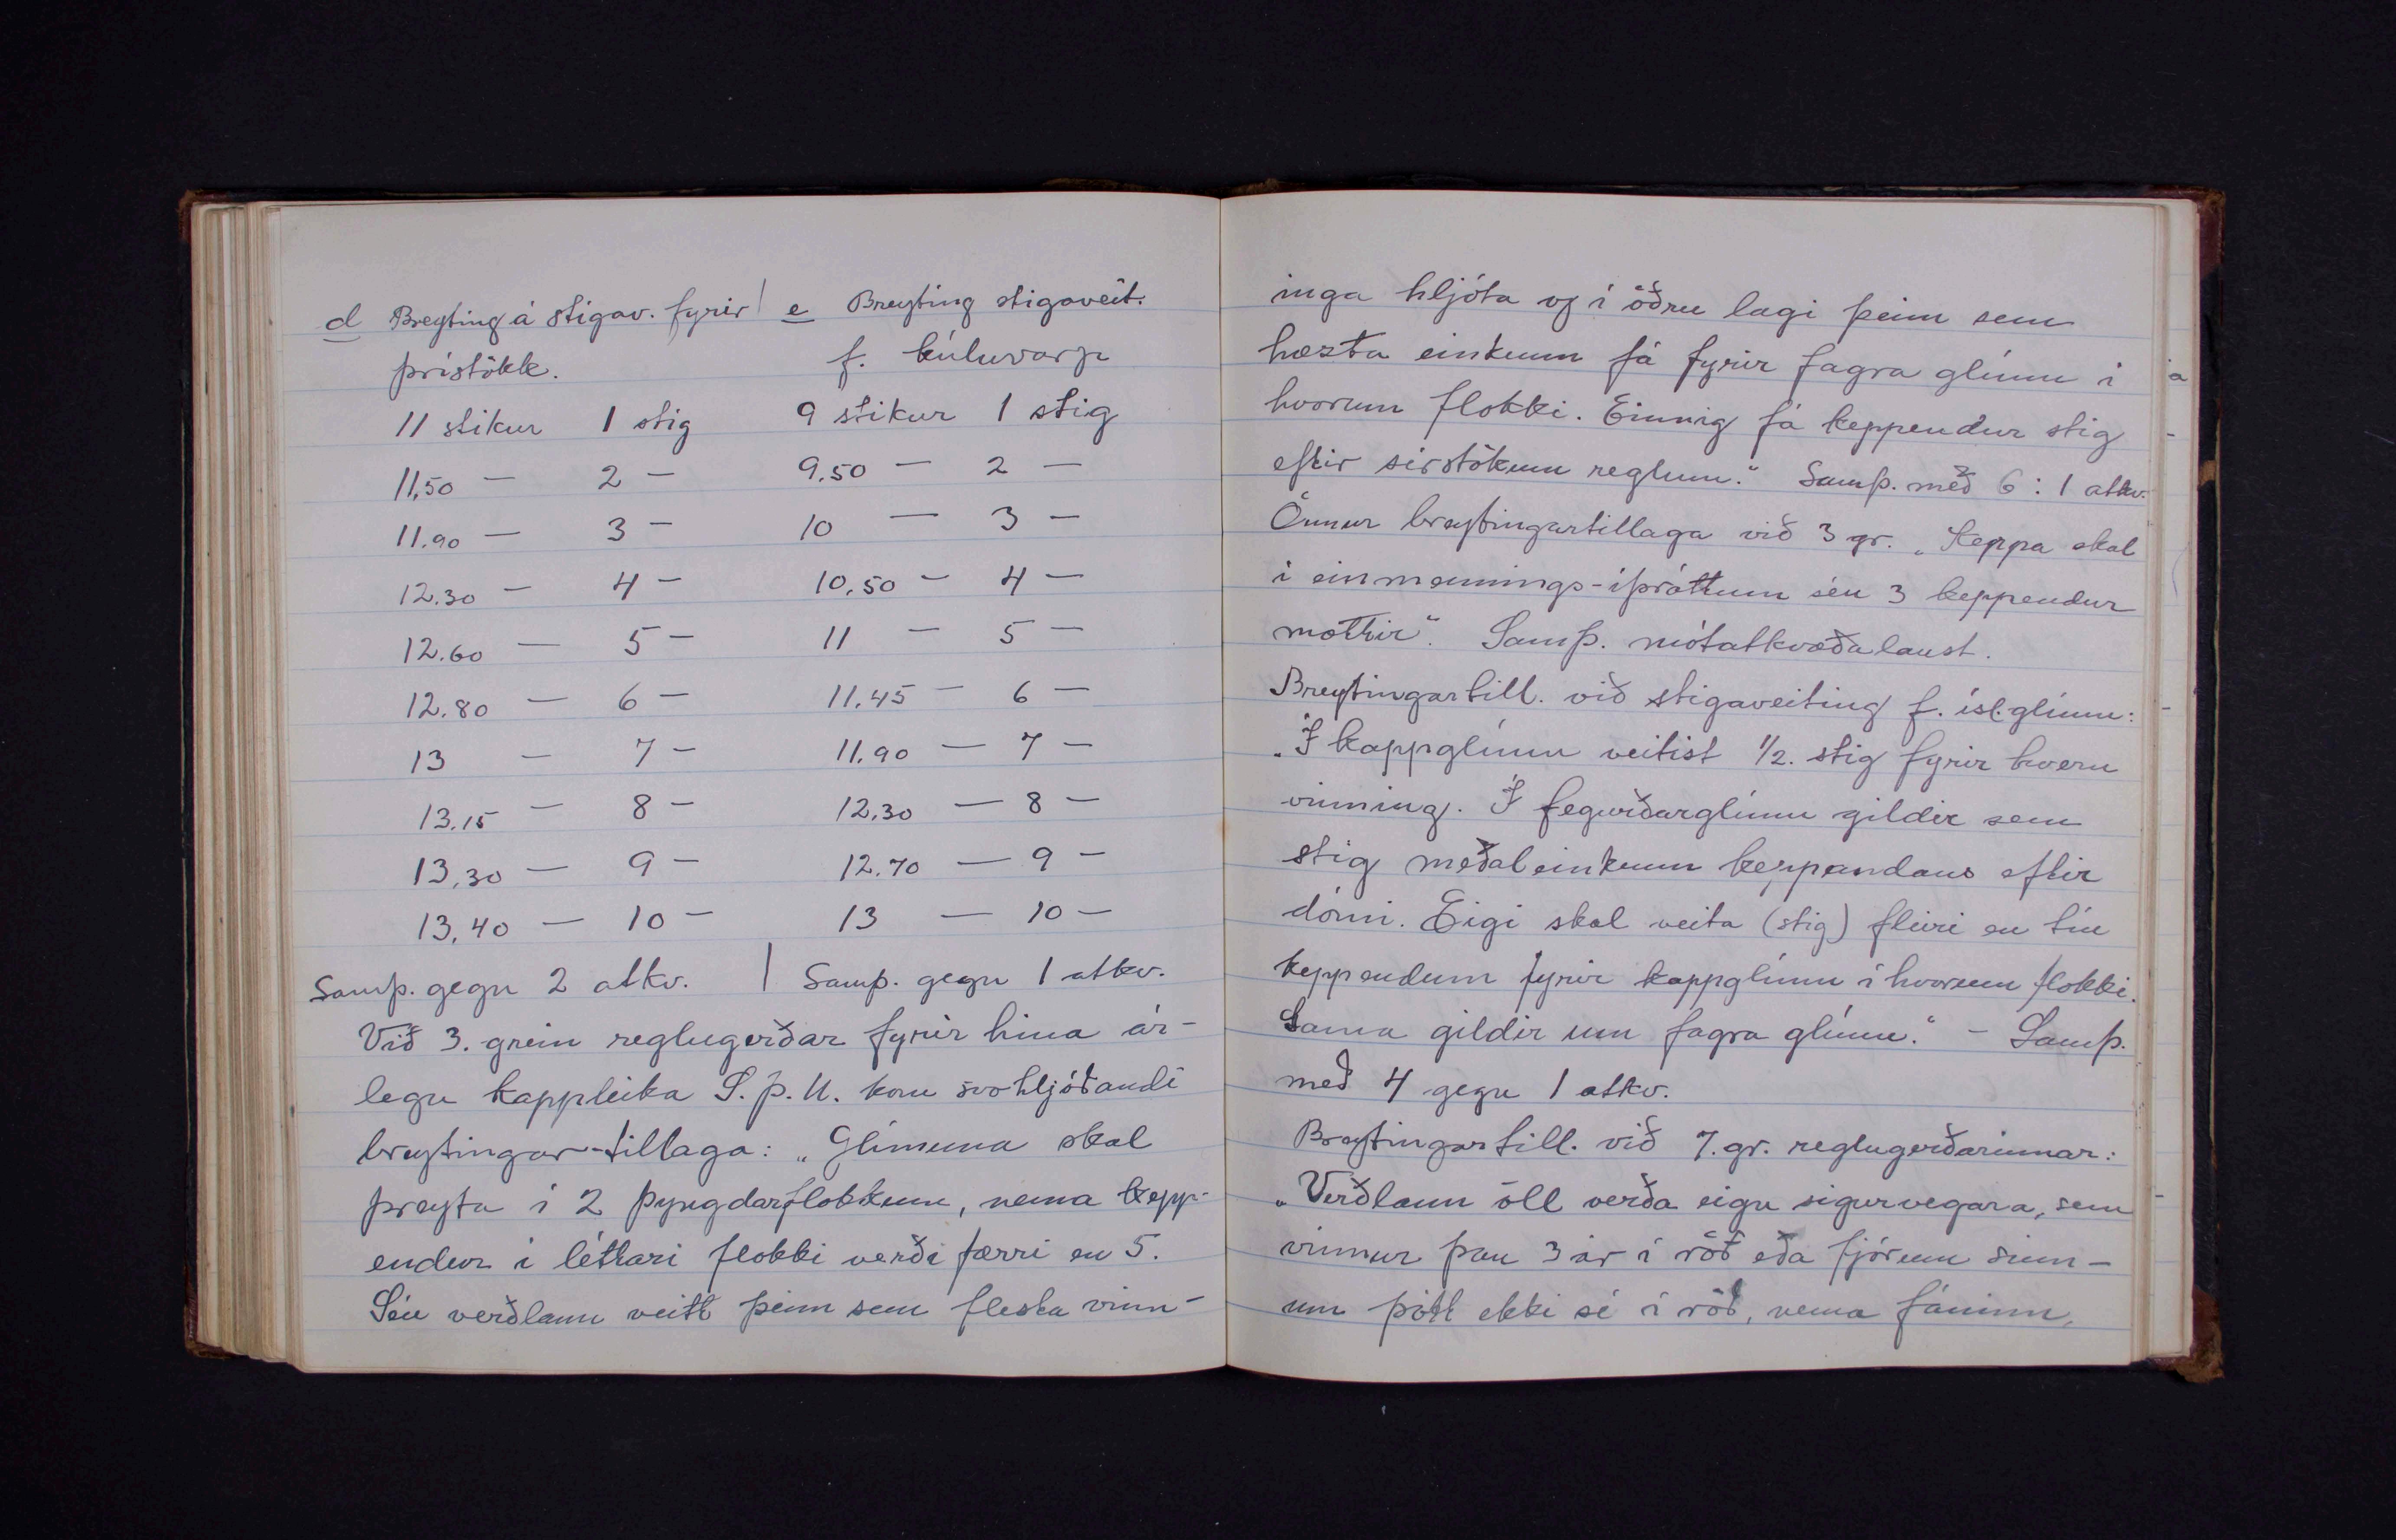 d Breyting á stigav. fyrir | e Breyting stigaveit.
þrístökk. f. kúluvarp
11 stikur 1 stig 9 stikur 1 stig
11,50 — 2 — 9,50 — 2 —
11.90 — 3 — 10 — 3 —
12.30 — 4 — 10,50 — 4 —
12.60 — 5 — 11 — 5 —
12.80 — 6 — 11,45 — 6 —
13 — 7 — 11,90 — 7 —
13,15 — 8 — 12,30 — 8 —
13,30 — 9 — 12.70 — 9 —
13,40 — 10 — 13 — 10 —
Samþ. gegn 2 atkv. | Samþ. gegn 1 atkv.
Við 3. grein reglugerðar fyrir hina ár-
legu kappleika S.þ.U. kom svohljóðandi
breytingar-tillaga: „Glímuna skal
þreyta í 2 þyngdarflokkum, nema kepp-
endur í léttari flokki verði færri en 5.
Séu verðlaun veitt þeim sem flesta vinn-
inga hljóta og í öðru lagi þeim sem
hæsta einkunn fá fyrir fagra glímu í
hvorum flokki. Einnig fá keppendur stig
eftir sérstökum reglum." Samþ. með 6 : 1 atkv.
Önnur breytingartillaga við 3 gr. „Keppa skal
í einmennings-íþróttum séu 3 keppendur
mættir". Samþ. mótatkvæðalaust.
Breytingartill. við stigaveiting f. ísl. glímu:
„Í kappglímu veitist 1/2. stig fyrir hvern
vinning. Í fegurðarglímu gildir sem
stig meðaleinkunn keppandans eftir
dómi. Eigi skal veita (stig) fleiri en tíu
keppendum fyrir kappglímu í hvorum flokki.
Sama gildir um fagra glímu." - Samþ.
með 4 gegn 1 atkv.
Breytingartill. við 7. gr. reglugerðarinnar:
„Verðlaun öll verða eign sigurvegara, sem
vinnur þau 3 ár í röð eða fjórum sinn-
um þótt ekki sé í röð, nema fáninn,